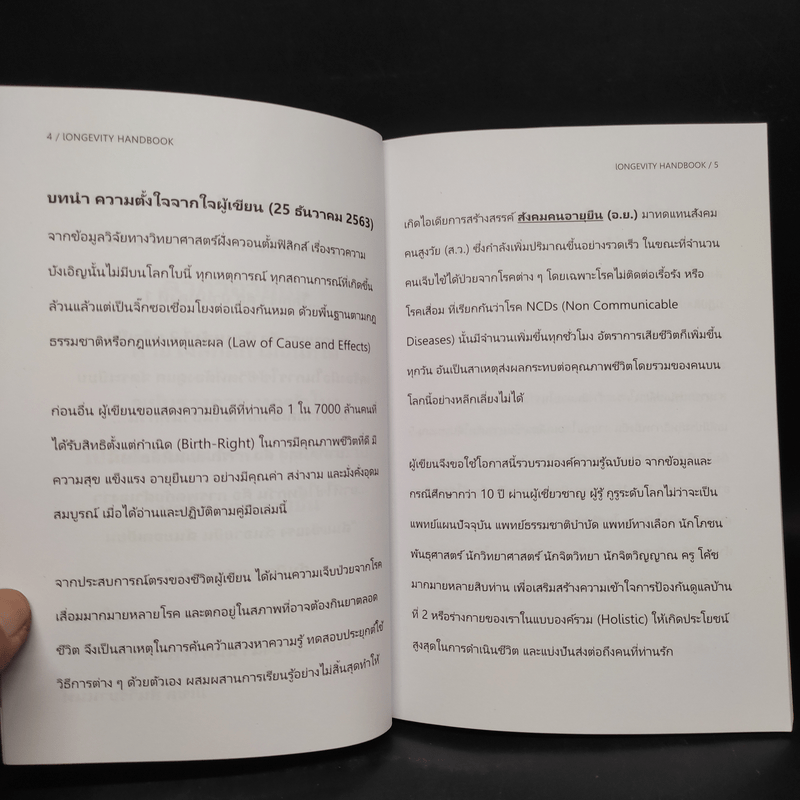 4 / lONGEVITY HANDBOOK
บทนำ ความตั้งใจจากใจผู้เขียน (25 ธันวาคม 2563)
จากข้อมูลวิจัยทางวิทยาศาสตร์ฝั่งควอนตั้มฟิสิกส์ เรื่องราวความ
บังเอิญนั้นไม่มีบนโลกใบนี้ ทุกเหตุการณ์ ทุกสถานการณ์ที่เกิดขึ้น
ล้วนแล้วแต่เป็นจิ๊กซอเชื่อมโยงต่อเนื่องกันหมด ด้วยพื้นฐานตามกฎ
ธรรมชาติหรือกฎแห่งเหตุและผล (Law of Cause and Effects)
ก่อนอื่น ผู้เขียนขอแสดงความยินดีที่ท่านคือ 1 ใน 7000 ล้านคนที่
ได้รับสิทธิตั้งแต่กำเนิด (Birth-Right) ในการมีคุณภาพชีวิตที่ดี มี
ความสุข แข็งแรง อายุยืนยาว อย่างมีคุณค่า สง่างาม และมั่งคั่งอุดม
สมบูรณ์ เมื่อได้อ่านและปฏิบัติตามคู่มือเล่มนี้
จากประสบการณ์ตรงของชีวิตผู้เขียน ได้ผ่านความเจ็บป่วยจากโรค
เสื่อมมากมายหลายโรค และตกอยู่ในสภาพที่อาจต้องกินยาตลอด
ชีวิต จึงเป็นสาเหตุในการค้นคว้าแสวงหาความรู้ ทดสอบประยุกต์ใช้
วิธีการต่าง ๆ ด้วยตัวเอง ผสมผสานการเรียนรู้อย่างไม่สิ้นสุดทำให้
lONGEVITY HANDBOOK / 5
เกิดไอเดียการสร้างสรรค์ สังคมคนอายุยืน (อ.ย.) มาทดแทนสังคม
คนสูงวัย (ส.ว.) ซึ่งกำลังเพิ่มปริมาณขึ้นอย่างรวดเร็ว ในขณะที่จำนวน
คนเจ็บไข้ได้ป่วยจากโรคต่าง ๆ โดยเฉพาะโรคไม่ติดต่อเรื้อรัง หรือ
โรคเสื่อม ที่เรียกกันว่าโรค NCDs (Non Communicable
Diseases) นั้นมีจำนวนเพิ่มขึ้นทุกชั่วโมง อัตราการเสียชีวิตก็เพิ่มขึ้น
ทุกวัน อันเป็นสาเหตุส่งผลกระทบต่อคุณภาพชีวิตโดยรวมของคนบน
โลกนี้อย่างหลีกเลี่ยงไม่ได้
ผู้เขียนจึงขอใช้โอกาสนี้รวบรวมองค์ความรู้ฉบับย่อ จากข้อมูลและ
กรณีศึกษากว่า 10 ปี ผ่านผู้เชี่ยวชาญ ผู้รู้ กูรูระดับโลกไม่ว่าจะเป็น
แพทย์แผนปัจจุบัน แพทย์ธรรมชาติบำบัด แพทย์ทางเลือก นักโภชน
พันธุศาสตร์ นักวิทยาศาสตร์ นักจิตวิทยา นักจิตวิญญาณ ครู โค้ช
มากมายหลายสิบท่าน เพื่อเสริมสร้างความเข้าใจการป้องกันดูแลบ้าน
ที่ 2 หรือร่างกายของเราในแบบองค์รวม (Holistic) ให้เกิดประโยชน์
สูงสุดในการดำเนินชีวิต และแบ่งปันส่งต่อถึงคนที่ท่านรัก